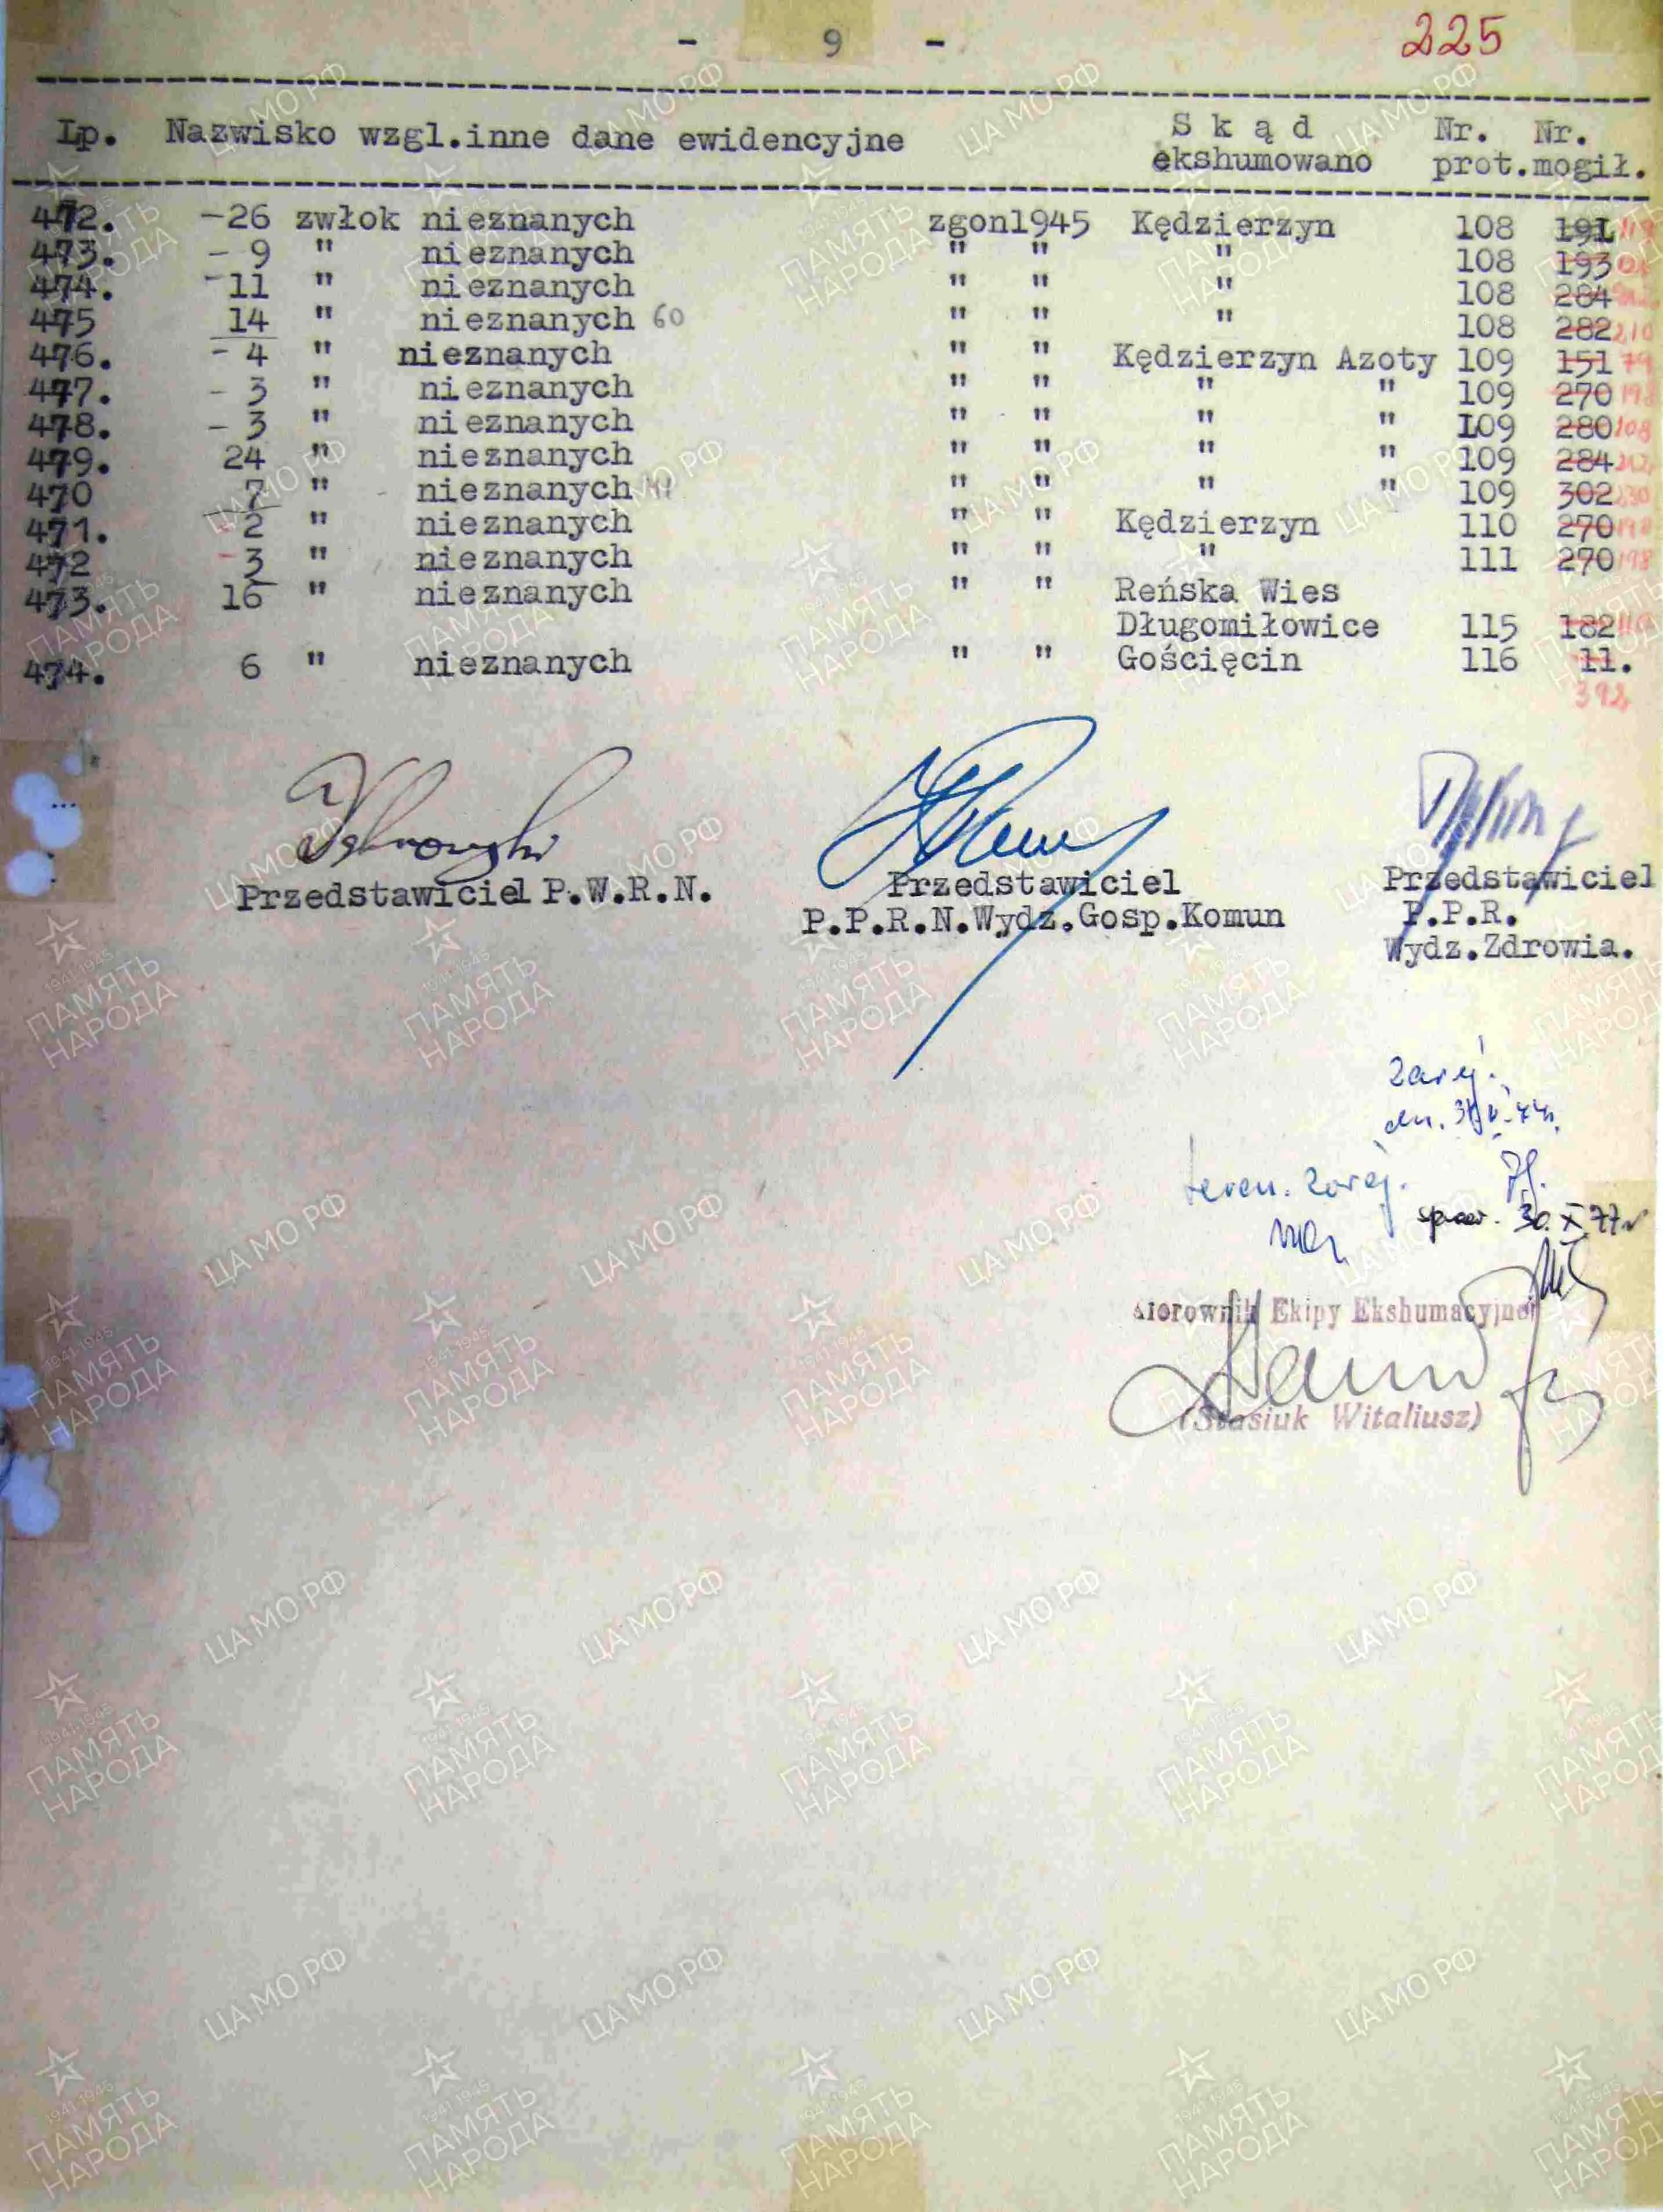 - 9 -
225
Lp. Nazwisko wzgl.inne dane ewidencyjne S k ą d ekshumowano Nr. prot. Nr. mogił.
472. -26 zwłok nieznanych zgon1945 Kędzierzyn 108 191
473. - 9 " nieznanych " " " 108 193
474. -11 " nieznanych " " " 108 284
475 14 " nieznanych 60 " " " 108 282 210
476. - 4 " nieznanych " " Kędzierzyn Azoty 109 151 79
477. - 3 " nieznanych " " " " 109 270 198
478. - 3 " nieznanych " " " " 109 280 108
479. 24 " nieznanych " " " " 109 284
470 7 " nieznanych 41 " " " " 109 302 230
471. 2 " nieznanych " " Kędzierzyn 110 270 198
472 - 3 " nieznanych " " " 111 270 198
473. 16 " nieznanych " " Reńska Wies
Długomiłowice 115 182 110
474. 6 " nieznanych " " Gościęcin 116 11.
392
Przedstawiciel P.W.R.N.
Przedstawiciel
P.P.R.N.Wydz.Gosp.Komun
Przedstawiciel
P.P.R.
Wydz.Zdrowia.
Zarej.
teren. zarej.
30.X.77r
Kierownik Ekipy Ekshumacyjnej
(Stasiuk Witaliusz)
ЦА МО РФ
1941-1945
ПАМЯТЬ
НАРОДА